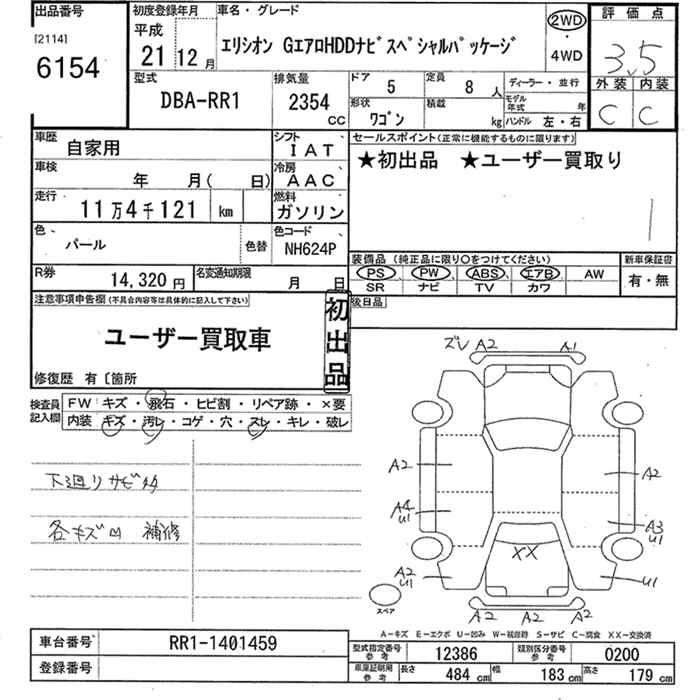 出品番号
[2114]
6154
初度登録年月
平成
21 12月
車名・グレード
エリシオン GエアロHDDナビスペシャルパッケージ
2WD
・
4WD
評価点
3.5
外装 内装
C C
型式
DBA-RR1
排気量
2354
CC
ドア 5
定員 8人
ディーラー・並行
形状 ワゴン
積載 kg
モデル年式 年
ハンドル 左・右
車歴 自家用
シフト IAT
セールスポイント(正常に機能するものに限ります)
★初出品 ★ユーザー買取り
車検 年 月( 日)
冷房 AAC
走行 11万4千121 km
燃料 ガソリン
色 パール 色替
色コード NH624P
装備品 (純正品に限り○をつけてください)
PS PW ABS エアB AW
SR ナビ TV カワ
新車保証書
有・無
R券 14,320円
名変通知期限 月 日
後日品
注意事項申告欄(不具合内容等は具体的に記入して下さい)
ユーザー買取車
初出品
修復歴 有〔箇所
検査員記入欄
FW キズ・飛石・ヒビ割・リペア跡・×要
内装 キズ・汚レ・コゲ・穴・スレ・キレ・破レ
下廻りサビ
各キズ凹 補修
ズレ A2 A1
A2 A2
A4 U1 A3 U1
XX
A2 U1 U1
A2 A2 A2
スペア
A-キズ E-エクボ U-凹み W-補修跡 S-サビ C-腐食 XX-交換済
車台番号 RR1-1401459
型式指定番号 参考 12386
類別区分番号 参考 0200
登録番号
車庫証明用 参考 長さ 484cm 幅 183cm 高さ 179cm